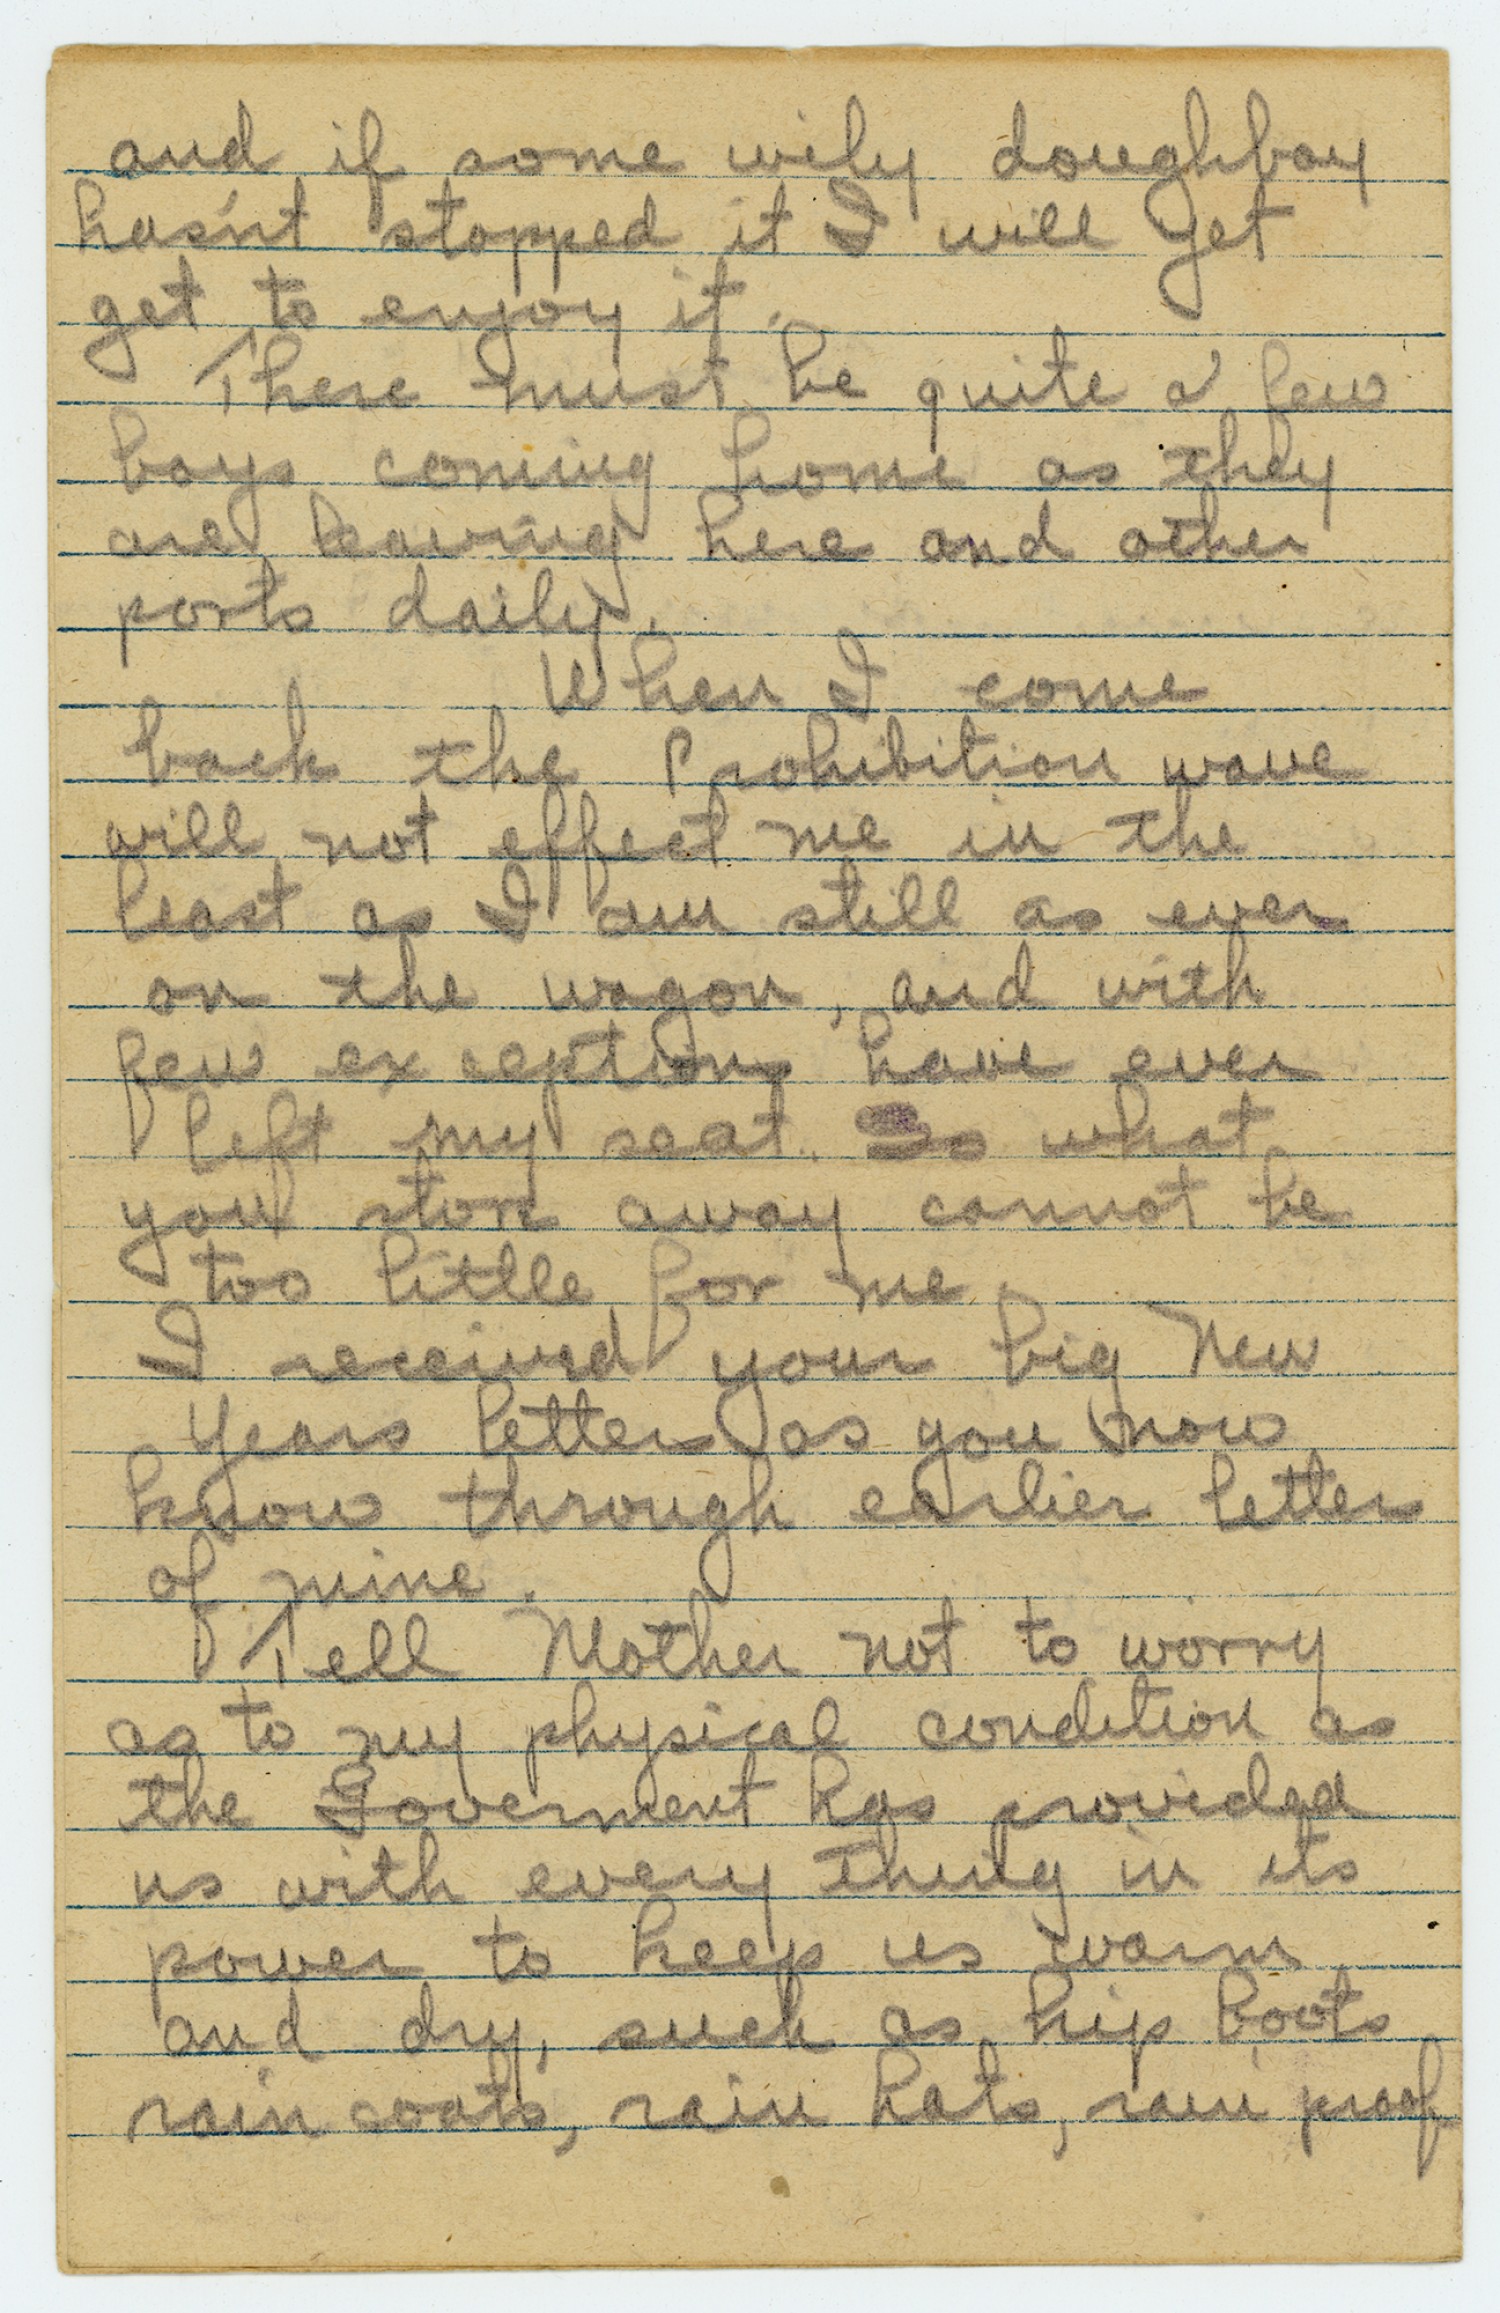 and if some wily doughboy
hasn't stopped it I will yet
get to enjoy it.
There must be quite a few
boys coming home as they
are leaving here and other
ports daily.
When I come
back the Prohibition wave
will not effect me in the
least as I am still as ever
on the wagon, and with
few exceptions have ever
left my seat. So what
you store away cannot be
too little for me.
I received your big New
Years letter as you now
know through earlier letter
of mine.
Tell Mother not to worry
as to my physical condition as
the Goverment has provided
us with every thing in its
power to keep us warm
and dry, such as hip boots
rain coats, rain hats, rain proof